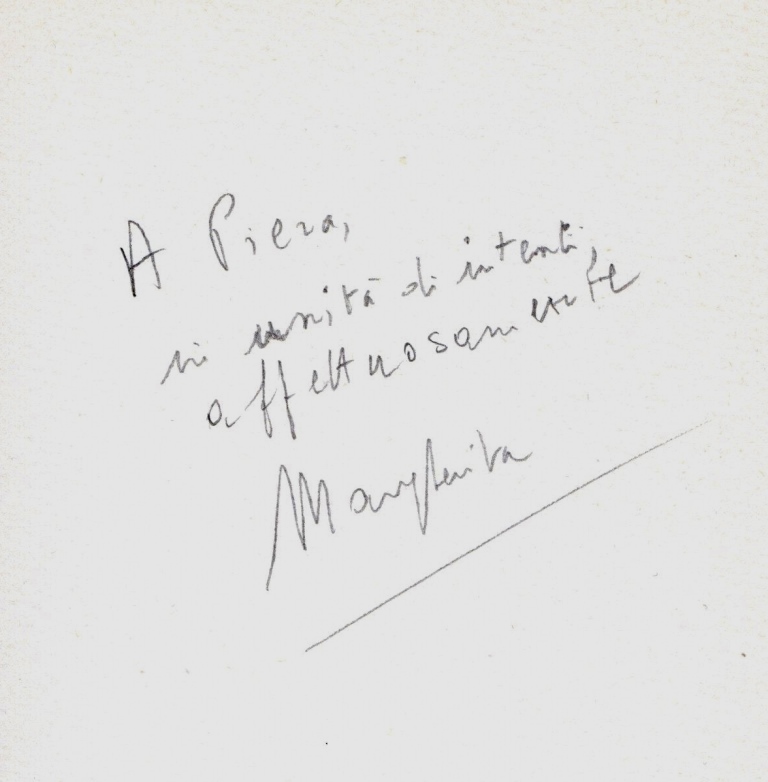 A Piera,
in unità di intenti,
affettuosamente
Margherita